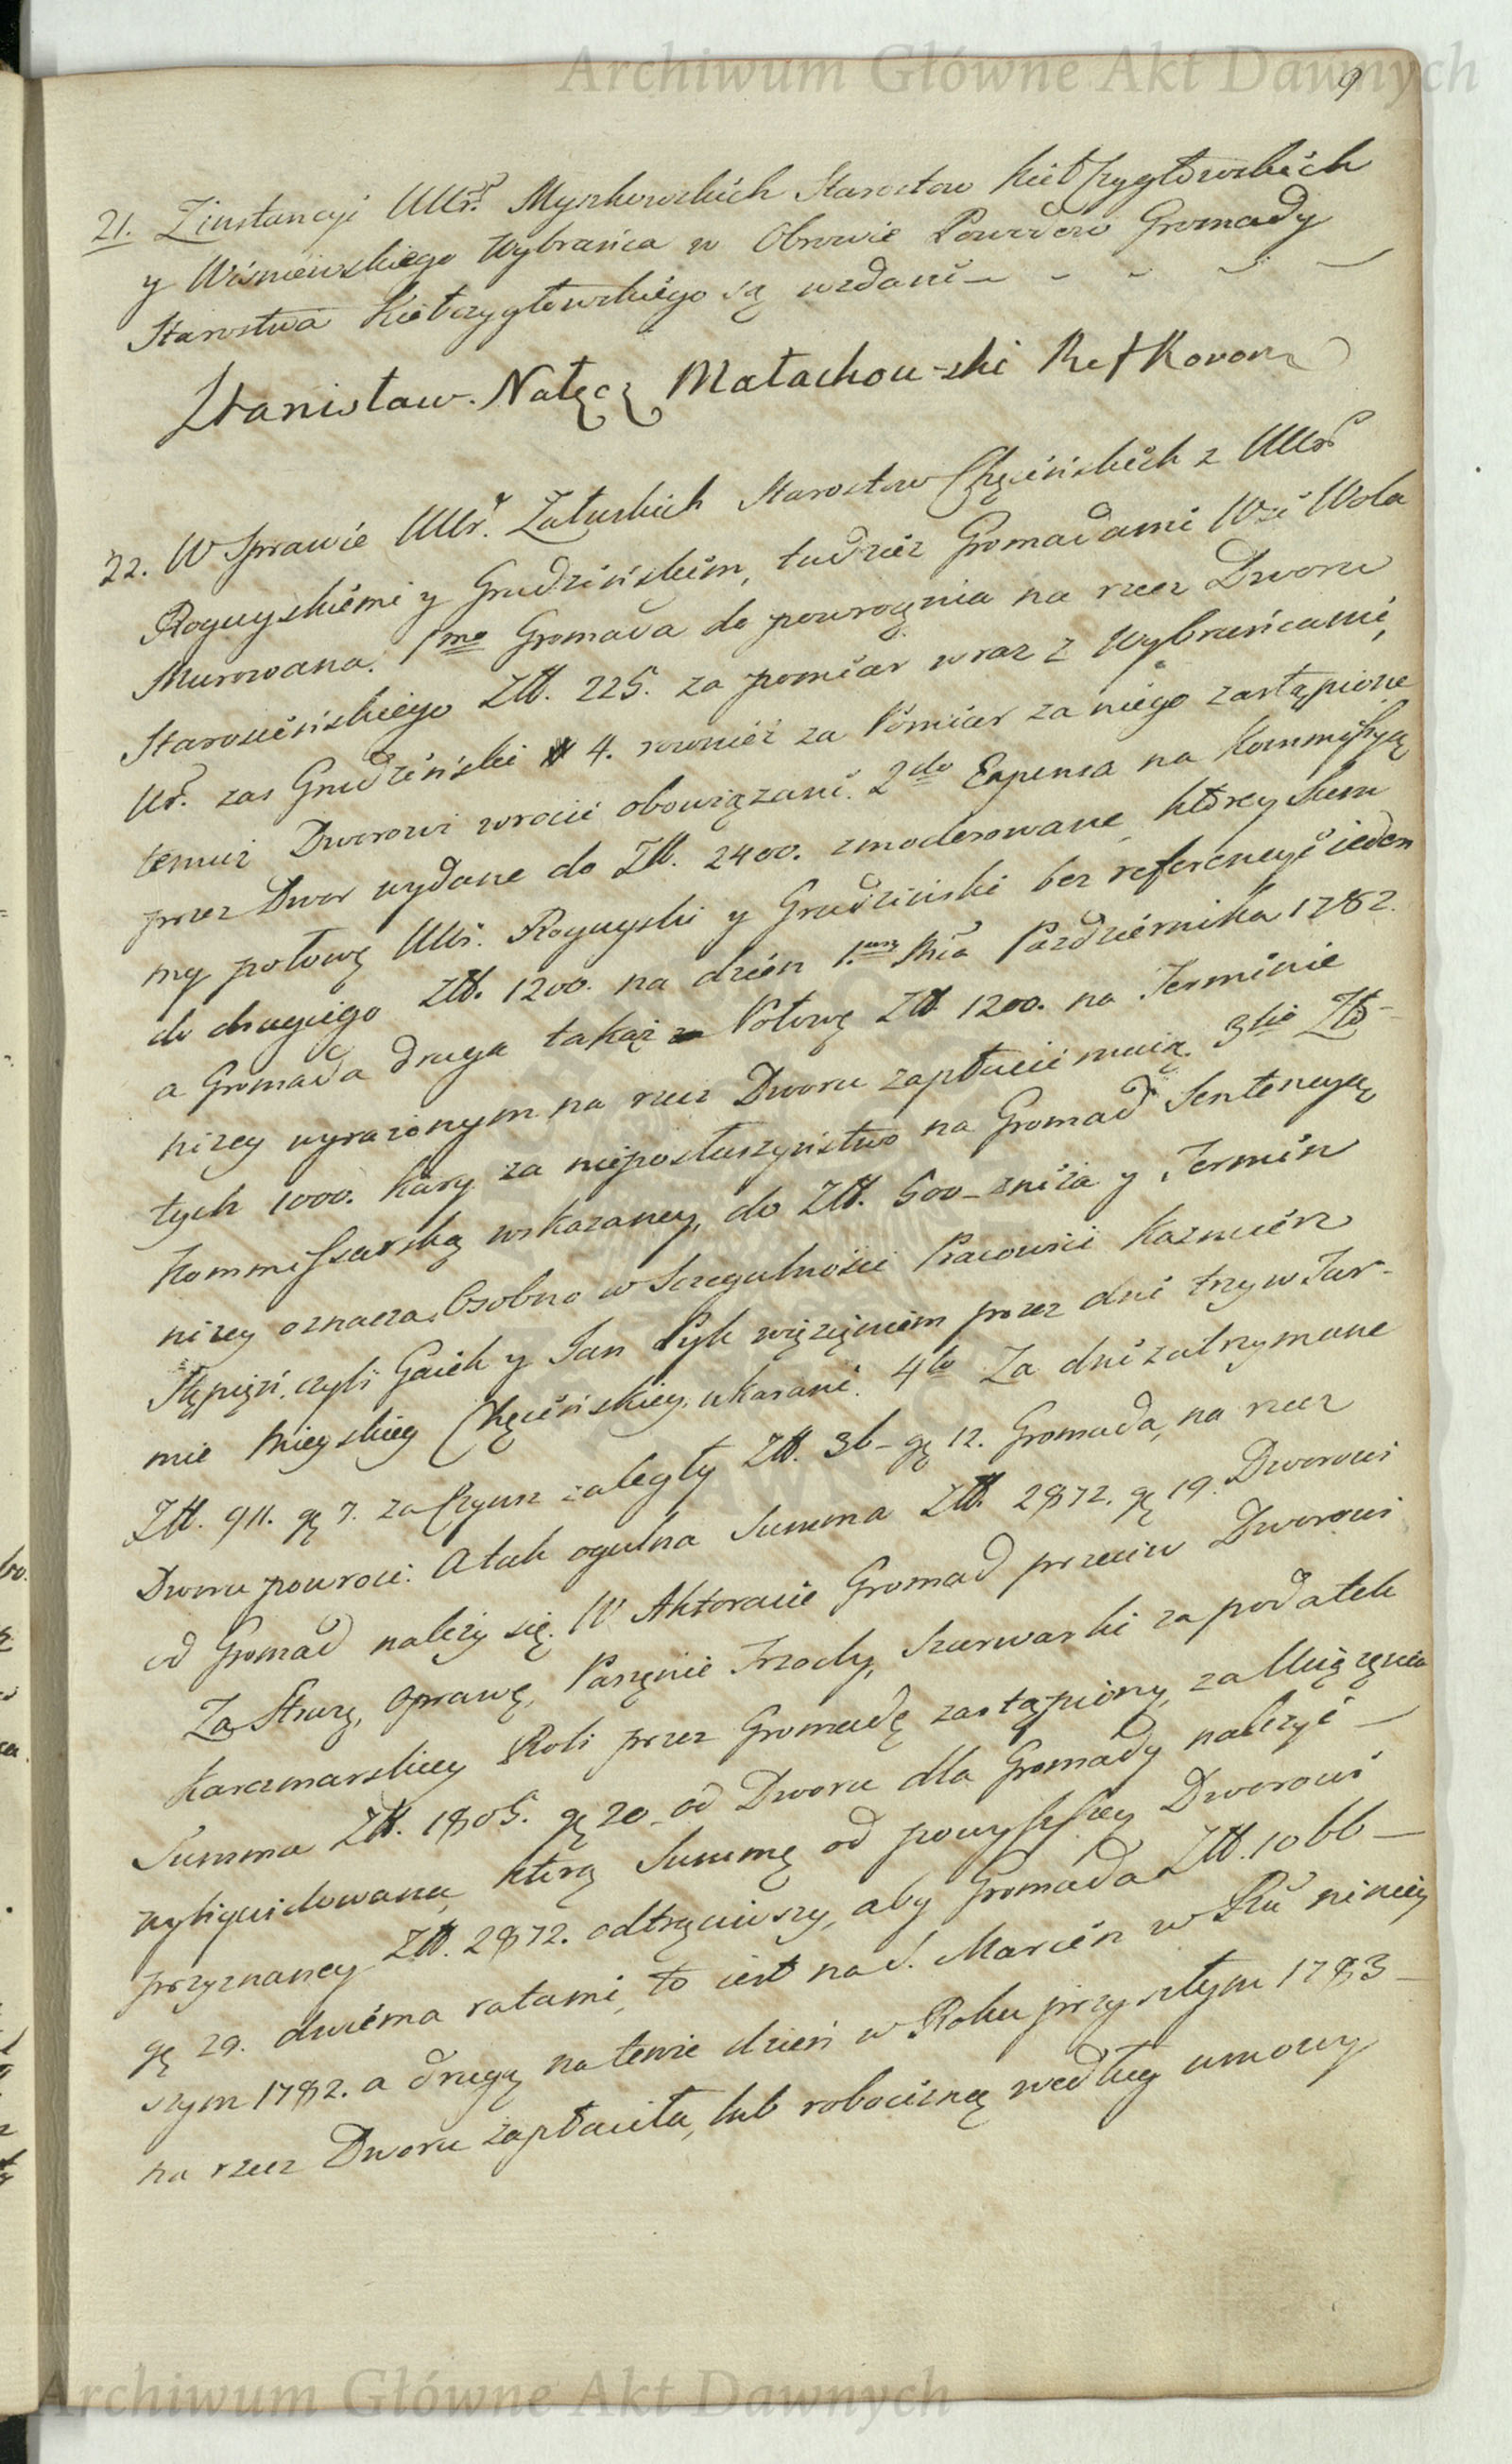 Archiwum Główne Akt Dawnych
9
21. Zinstancyi UUr. Myszkowskich Starostow Kiełczygłowskich
y Wiśniewskiego Wybrańca w Obrowie Powodow Gromady
Starostwa Kiełczygłowskiego są wzdani - - - -
Stanisław Nałęcz Małachowski Ref Koron
22. W Sprawie UUr. Załuskich Starostow Chęcińskich z UUr
Roguyskiemi y Grudzińskim, tudzież Gromadami Wsi Wola
Murowana. 1mo Gromada do powrocenia na rzecz Dworu
Starościńskiego Złł. 225. za pomiar wraz z Wybrańcami,
Ur. zas Grudziński 4. rownież za Pomiar za niego zastąpione
temuż Dworowi wrocić obowiązani. 2do Expensa na Kommissyą
przez Dwor wydane do Złł. 2400. zmoderowane, ktorey Sum̄
my połowę UUr. Roguyski y Grudziński bez referencyi ieden
do drugiego Złł. 1200. na dzień 1. mca Października 1782.
a Gromada druga takąż Połowę Złł 1200. na Terminie
niżey wyrażonym na rzecz Dworu zapłacić maią. 3tio Zło-
tych 1000. kary za nieposłuszyństwo na Gromad Sentencyą
Kommissarską wskazaney, do Złł. 500 - zniża y Termin
niżey oznacza. Osobno w Szczegulności Pracowici Kazmierz
Stępień czyli Gaick y Jan Pyk więzieniem przez dni trzy w Tur-
mie Mieyskiey Chęcińskiey ukarani. 4to Za dni zatrzymane
Złł. 911. gę 7. za Czynsz zaległy Złł. 36 - gę 12. Gromada, na rzecz
Dworu powroci. A tak ogulna Summa Złł. 2872. gę 19. Dworowi
od Gromad należy się. W Aktoracie Gromad przeciw Dworowi
Za Struzę, Oprawę, Paszenie Trzody, Szarwarki za podatek
Karczmarskiey Roli przez Gromadę zastąpiony, za Uciążenia
Summa Złł. 1805. gę 20 - od Dworu dla Gromady należyć -
wylikwidowana, którą Summę od powyższey Dworowi
przyznaney Złł. 2872. odtrąciwszy, aby Gromada Złł. 1066 -
gę 29. dwiema ratami, to iest na S. Marcin w Rku niniey
szym 1782. a drugą na tenże dzień w Roku przyszłym 1783 -
na rzecz Dworu zapłaciła, lub robocizną według umowy
Archiwum Główne Akt Dawnych